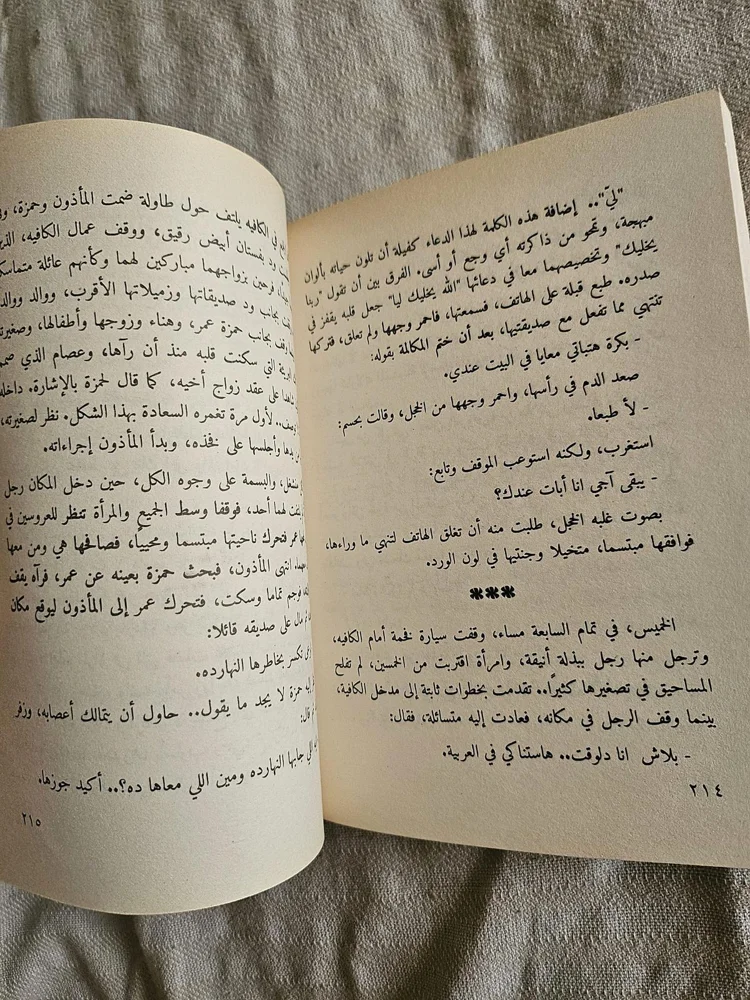 "ليّ".. إضافة هذه الكلمة لهذا الدعاء كفيلة أن تلون حياته بألوان
مبهجة، وتمحو من ذاكرته أي وجع أو أسى. الفرق بين أن تقول "ربنا
يخليك" وتخصيصهما معا في دعائها "الله يخليك ليا" جعل قلبه يقفز في
صدره. طبع قبلة على الهاتف، فسمعتها، فاحمر وجهها ولم تعلق، فتركها
تنتهي مما تفعل مع صديقتيها، بعد أن ختم المكالمة بقوله:
- بكرة هتباتي معايا في البيت عندي.
صعد الدم في رأسها، واحمر وجهها من الخجل، وقالت بحسم:
- لأ طبعا.
استغرب، ولكنه استوعب الموقف وتابع:
- يبقى آجي انا أبات عندك؟
بصوت غلبه الخجل، طلبت منه أن تغلق الهاتف لتنهي ما وراءها،
فوافقها مبتسما، متخيلا وجنتيها في لون الورد.
***
الخميس، في تمام السابعة مساء، وقفت سيارة فخمة أمام الكافيه،
وترجل منها رجل ببذلة أنيقة، وامرأة اقتربت من الخمسين، لم تفلح
المساحيق في تصغيرها كثيرًا.. تقدمت بخطوات ثابتة إلى مدخل الكافية،
بينما وقف الرجل في مكانه، فعادت إليه متسائلة، فقال:
- بلاش انا دلوقت.. هاستناكي في العربية.
٢١٤
في الكافيه يلتف حول طاولة ضمت المأذون وحمزة،
ود بفستان أبيض رقيق، ووقف عمال الكافيه،
فرحين بزواجهما مباركين لهما وكأنهم عائلة
بجانب ود صديقاتها وزميلاتها الأقرب، ووالد
بجانب حمزة عمر، وهناء وزوجها وأطفالها،
التي سكنت قلبه منذ أن رآها، وعصام الذي
على عقد زواج أخيه، كما قال لحمزة بالإشارة.
لأول مرة تغمره السعادة بهذا الشكل. نظر لصغيرته،
وأجلسها على فخذه، وبدأ المأذون إجراءاته.
والبسمة على وجوه الكل، حين دخل المكان رجل
لهما أحد، فوقفا وسط الجميع والمرأة تنظر للعروسين في
عمر فتحرك ناحيتها مبتسما ومحيياً، فصافحها هي ومن معها
انتهى المأذون، فبحث حمزة بعينه عن عمر، فرآه يقف
فوجم تماما وسكت، فتحرك عمر إلى المأذون ليوقع مكان
مال على صديقه قائلا:
تكسر بخاطرها النهارده.
حمزة لا يجد ما يقول.. حاول أن يتمالك أعصابه، وزفر
قال:
اللي جابها النهارده ومين اللي معاها ده؟.. أكيد جوزها.
٢١٥